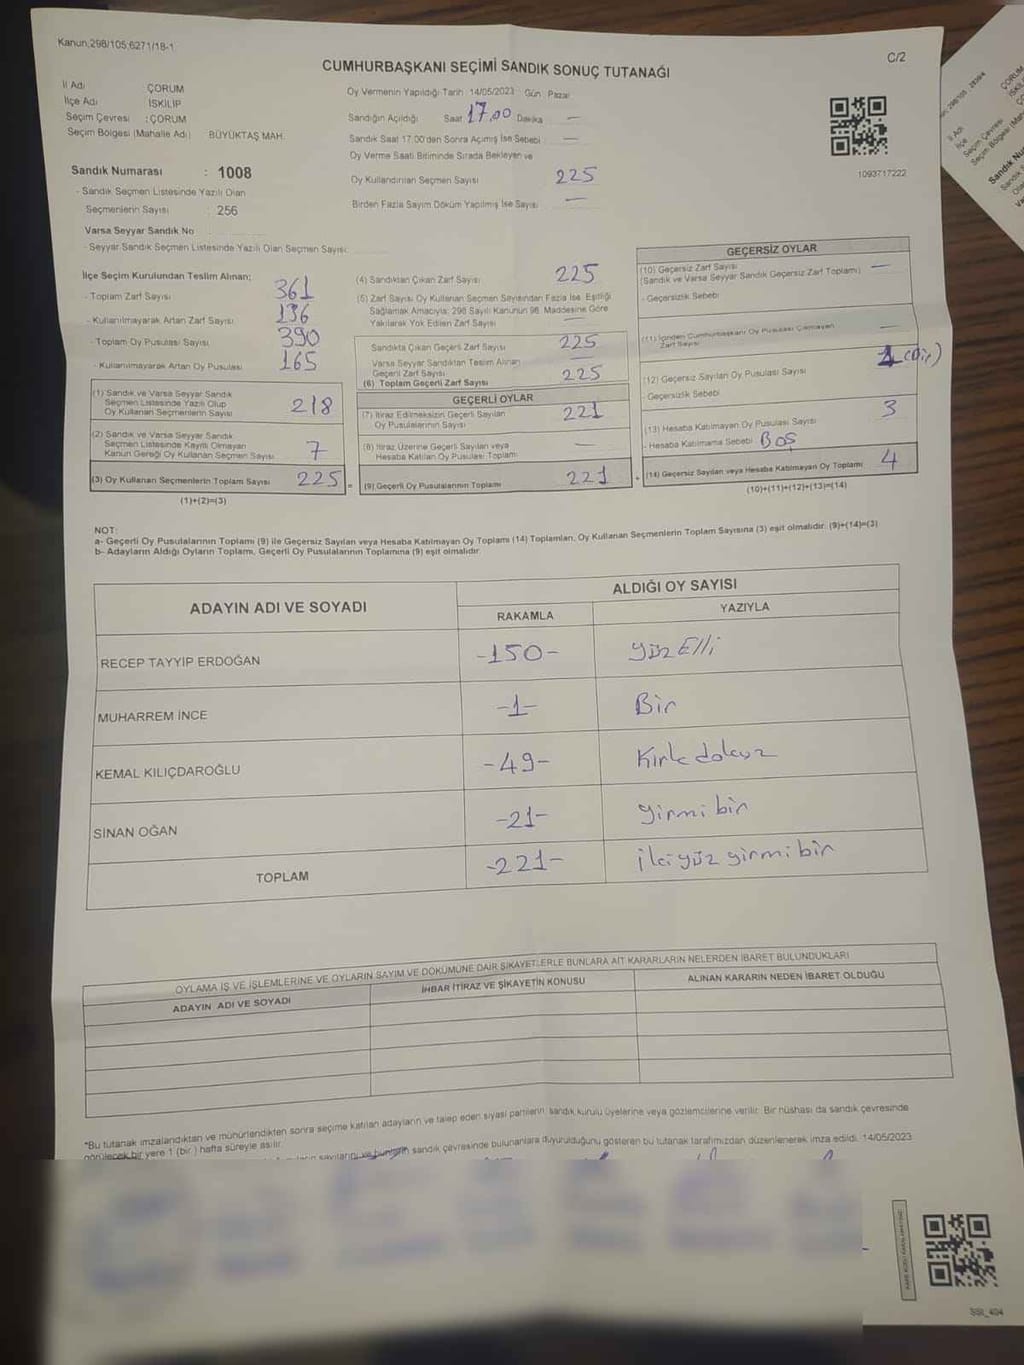 Kanun;298/105,6271/18-1
C/2
CUMHURBAŞKANI SEÇİMİ SANDIK SONUÇ TUTANAĞI
İl Adı ÇORUM
İlçe Adı İSKİLİP
Seçim Çevresi :ÇORUM
Seçim Bölgesi (Mahalle Adı) BÜYÜKTAŞ MAH.
Oy Vermenin Yapıldığı Tarih: 14/05/2023 Gün: Pazar
Sandığın Açıldığı Saat 17.00 Dakika —
Sandık Saat 17:00'den Sonra Açılmış İse Sebebi —
Oy Verme Saati Bitiminde Sırada Bekleyen ve
Oy Kullandırılan Seçmen Sayısı 225
Birden Fazla Sayım Döküm Yapılmış İse Sayısı —
1093717222
Sandık Numarası : 1008
- Sandık Seçmen Listesinde Yazılı Olan
Seçmenlerin Sayısı : 256
Varsa Seyyar Sandık No
- Seyyar Sandık Seçmen Listesinde Yazılı Olan Seçmen Sayısı:
İlçe Seçim Kurulundan Teslim Alınan;
- Toplam Zarf Sayısı 361
- Kullanılmayarak Artan Zarf Sayısı 136
- Toplam Oy Pusulası Sayısı 390
- Kullanılmayarak Artan Oy Pusulası 165
(1) Sandık ve Varsa Seyyar Sandık
Seçmen Listesinde Yazılı Olup
Oy Kullanan Seçmenlerin Sayısı 218
(2) Sandık ve Varsa Seyyar Sandık
Seçmen Listesinde Kayıtlı Olmayan
Kanun Gereği Oy Kullanan Seçmen Sayısı 7
(3) Oy Kullanan Seçmenlerin Toplam Sayısı 225 =
(1)+(2)=(3)
(4) Sandıktan Çıkan Zarf Sayısı 225
(5) Zarf Sayısı Oy Kullanan Seçmen Sayısından Fazla İse, Eşitliği
Sağlamak Amacıyla; 298 Sayılı Kanunun 98. Maddesine Göre
Yakılarak Yok Edilen Zarf Sayısı —
Sandıkta Çıkan Geçerli Zarf Sayısı 225
Varsa Seyyar Sandıktan Teslim Alınan
Geçerli Zarf Sayısı —
(6) Toplam Geçerli Zarf Sayısı 225
GEÇERLİ OYLAR
(7) İtiraz Edilmeksizin Geçerli Sayılan
Oy Pusulalarının Sayısı 221
(8) İtiraz Üzerine Geçerli Sayılan veya
Hesaba Katılan Oy Pusulası Toplamı —
(9) Geçerli Oy Pusulalarının Toplamı 221 +
GEÇERSİZ OYLAR
(10) Geçersiz Zarf Sayısı
(Sandık ve Varsa Seyyar Sandık Geçersiz Zarf Toplamı) —
- Geçersizlik Sebebi
(11) İçinden Cumhurbaşkanı Oy Pusulası Çıkmayan
Zarf Sayısı —
(12) Geçersiz Sayılan Oy Pusulası Sayısı 1 (Bir)
- Geçersizlik Sebebi
(13) Hesaba Katılmayan Oy Pusulası Sayısı 3
- Hesaba Katılmama Sebebi BOŞ
(14) Geçersiz Sayılan veya Hesaba Katılmayan Oy Toplamı 4
(10)+(11)+(12)+(13)=(14)
NOT:
a- Geçerli Oy Pusulalarının Toplamı (9) ile Geçersiz Sayılan veya Hesaba Katılmayan Oy Toplamı (14) Toplamları, Oy Kullanan Seçmenlerin Toplam Sayısına (3) eşit olmalıdır. (9)+(14)=(3)
b- Adayların Aldığı Oyların Toplamı, Geçerli Oy Pusulalarının Toplamına (9) eşit olmalıdır.
ADAYIN ADI VE SOYADI
ALDIĞI OY SAYISI
RAKAMLA YAZIYLA
RECEP TAYYİP ERDOĞAN -150- yüz Elli
MUHARREM İNCE -1- Bir
KEMAL KILIÇDAROĞLU -49- Kırk dokuz
SİNAN OĞAN -21- yirmi bir
TOPLAM -221- iki yüz yirmi bir
OYLAMA İŞ VE İŞLEMLERİNE VE OYLARIN SAYIM VE DÖKÜMÜNE DAİR ŞİKAYETLERLE BUNLARA AİT KARARLARIN NELERDEN İBARET BULUNDUKLARI
ADAYIN ADI VE SOYADI İHBAR İTİRAZ VE ŞİKAYETİN KONUSU ALINAN KARARIN NEDEN İBARET OLDUĞU
*Bu tutanak imzalandıktan ve mühürlendikten sonra seçime katılan adayların ve talep eden siyasi partilerin, sandık kurulu üyelerine veya gözlemcilerine verilir. Bir nüshası da sandık çevresinde
görülecek bir yere 1 (bir) hafta süreyle asılır.
sandık çevresinde bulunanlara duyurulduğunu gösteren bu tutanak tarafımızdan düzenlenerek imza edildi. 14/05/2023